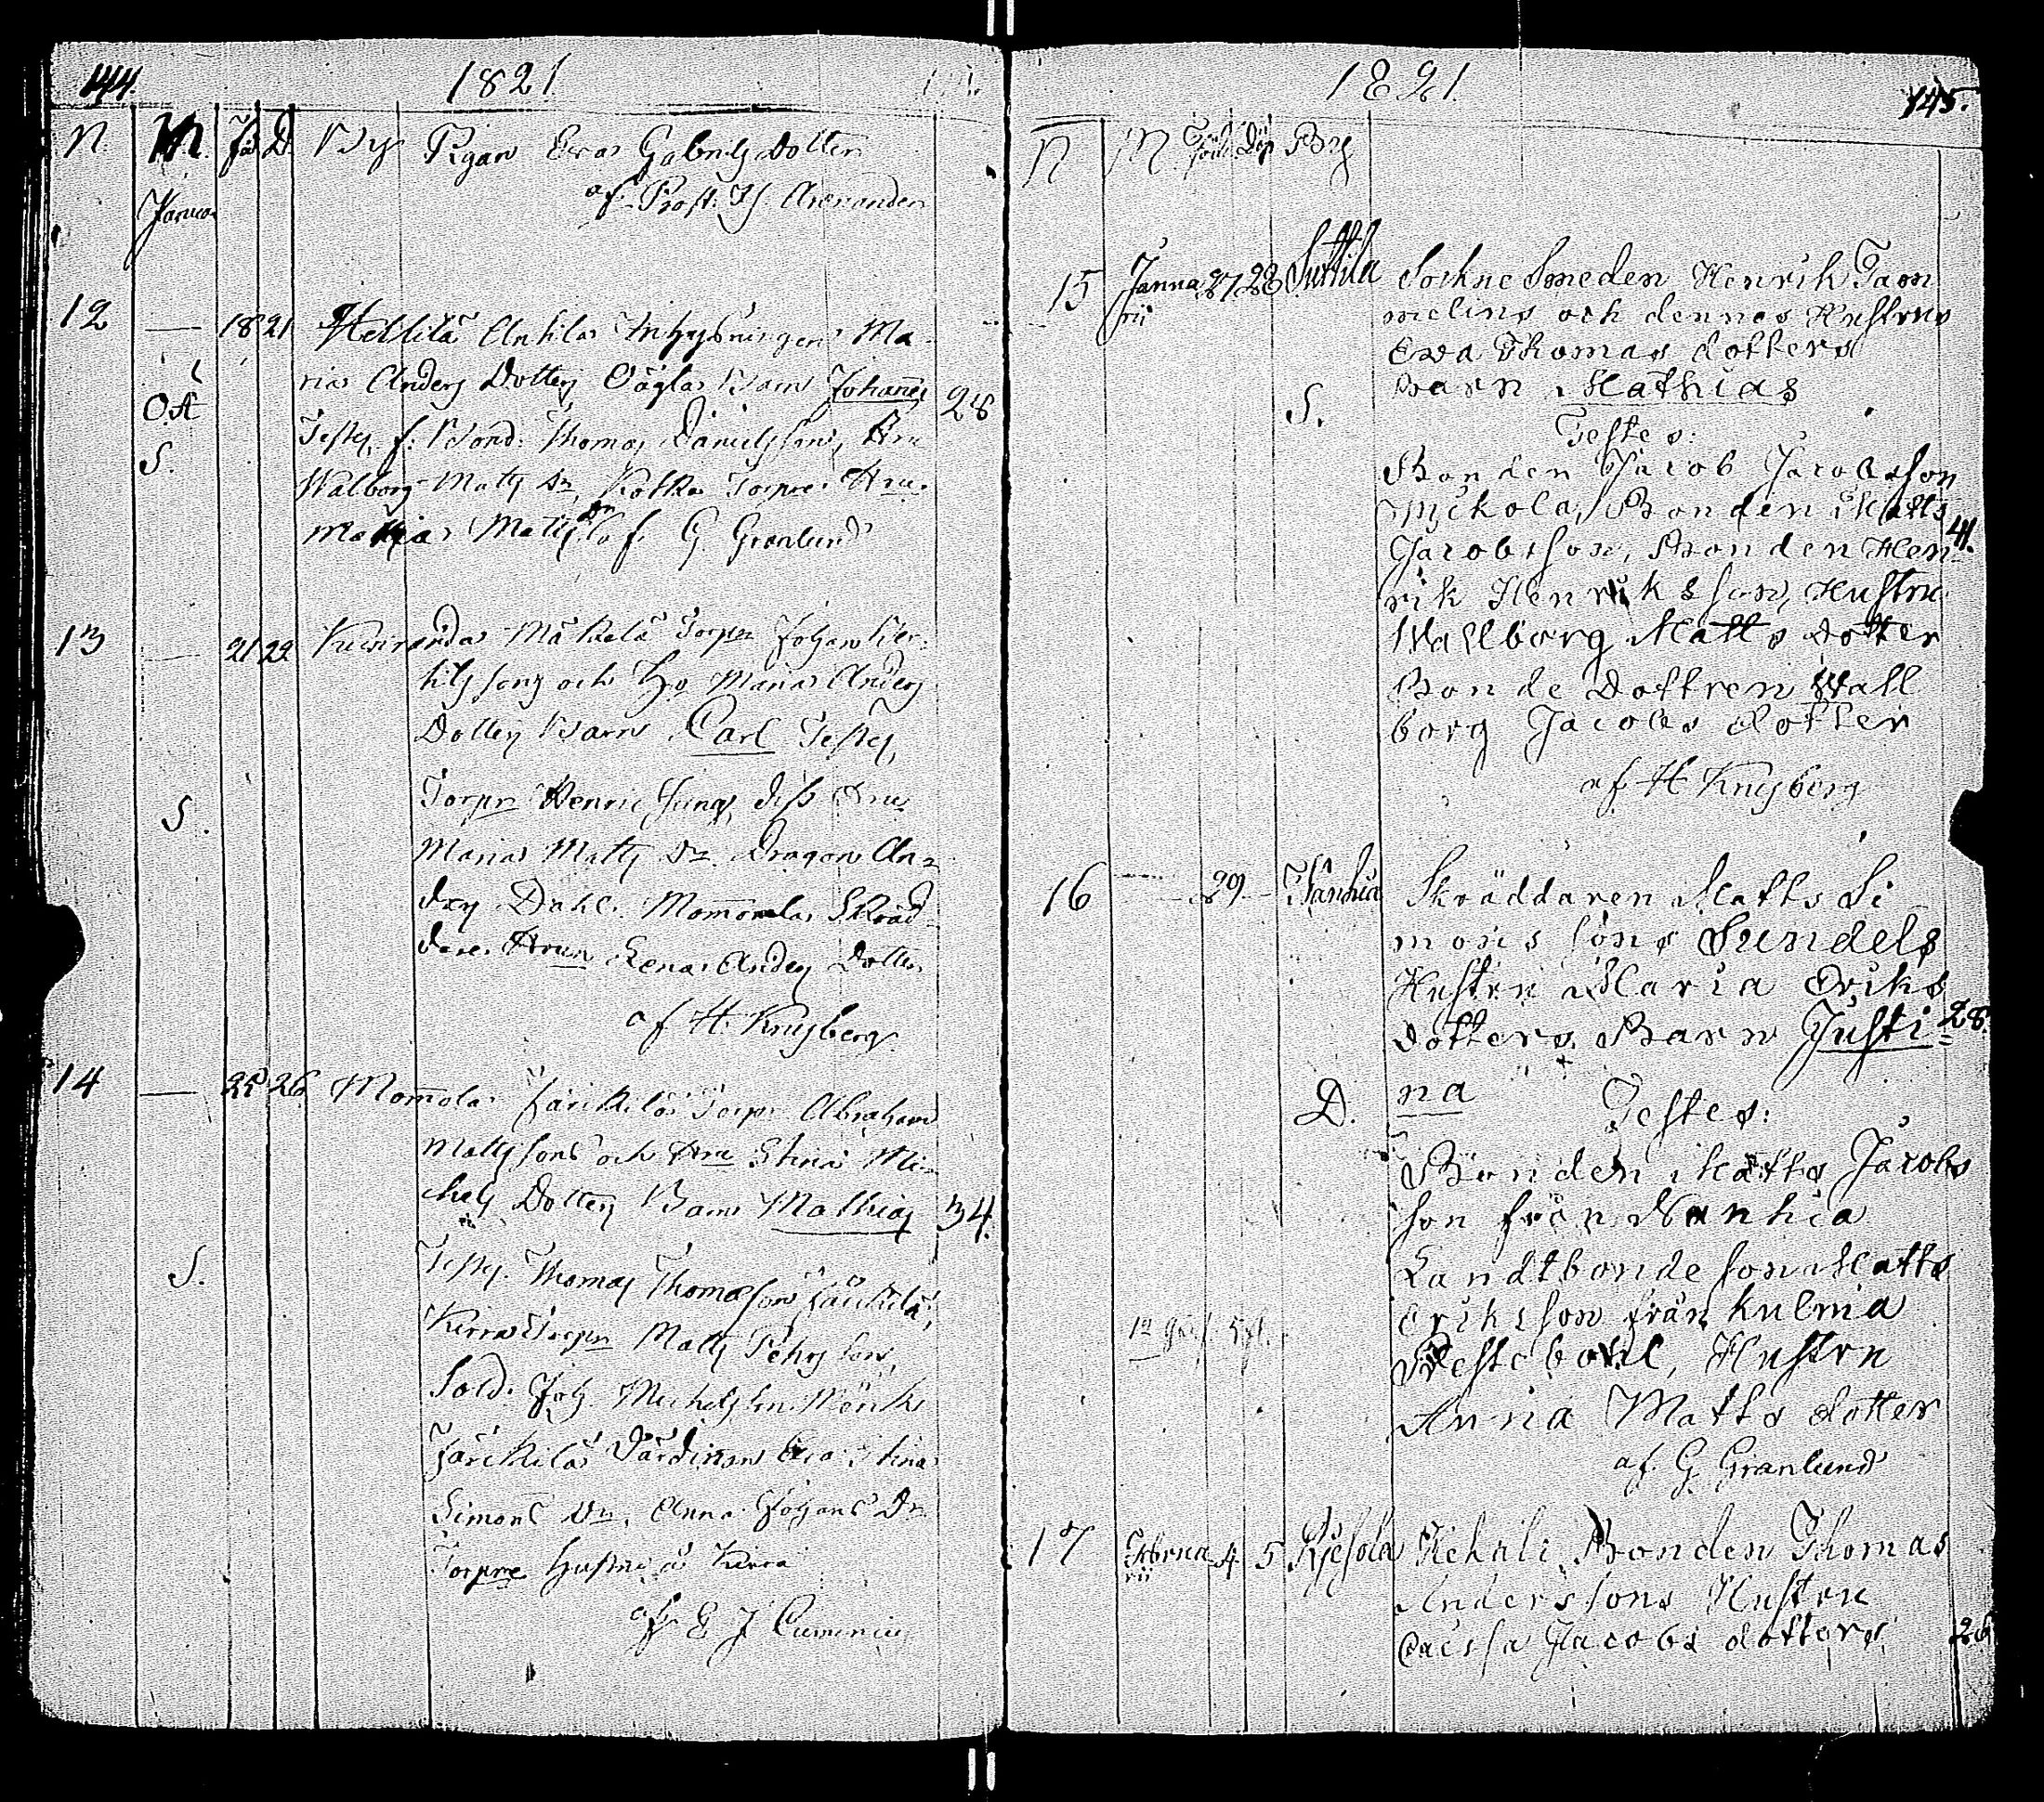 144. 1821
N. M. Föd D. By
Pigan Evas Gabriels Dotter
af Prost. Is Arenander
Janua
12 — 18 21 Heikilä Anttilas Inhysningen Ma
rias Anders Dotters Oägta Barn Johannes 28
OÄ
S.
Testes f. Bond. Thomas Danielsson, Hru
Walborg Matts Dr, Kotka Torpare Hru
Matts Dr af G. Granlund
13 — 21 22 Mäkelä Torpar Johan
sons och Ho Marias Anders
Dotters Barn Carl Testes,
Torpar Henric diss Hru
S.
Marias Matts Dr Dragon An-
ders Dahl. Mommola Skräd
dare Hrun Lena Anders Dotter
af H. Krysberg
14 — 25 26 Mommola Järikilä Torpar Abraham
Mattssons och Hru Stina Mi-
chels Dotters Barn Mathias 34.
S.
Testes. Thomas Thomasson Järikilä,
Torpar Matts Pehrsson,
Sold. Joh. Michelsson Mönk
Järikilä Stina
Simons Dr, Anna Johans Dr
Torpare hustru
af E J Cumenius
1821 145.
N M Född Döp By
15 Janna 27 28 Suttila Sockne Smeden Henrik Tam
rii
melins och dennes Hustrus
Ewa Thomas dotters
Barn Mathias
S.
Testes:
Bonden Jacob Jacobsson
Mickola, Bonden Matts
Jacobsson, Bonden Hen- 41.
rik Henriksson, Hustru
Wallborg Matts Dotter
Bonde Dottren Wall
borg Jacobs dotter
af H Krysberg
16 — 29 — Nanhia Skräddaren Matts Si
mons sons Sundels
Hustru Maria Eriks
dotters Barn Justi- 28.
D. na Testes:
Bonden Matts Jacobs
son från Nanhia
Landtbonde son Matts
Eriksson från Kulmia
Hustru
Anna Matts dotter
af. G. Granlund
17 Februa 4 5 Rjesola Kehali Bonden Thomas
rii
Anderssons Hustru
Caissa Jacobs dotters 26